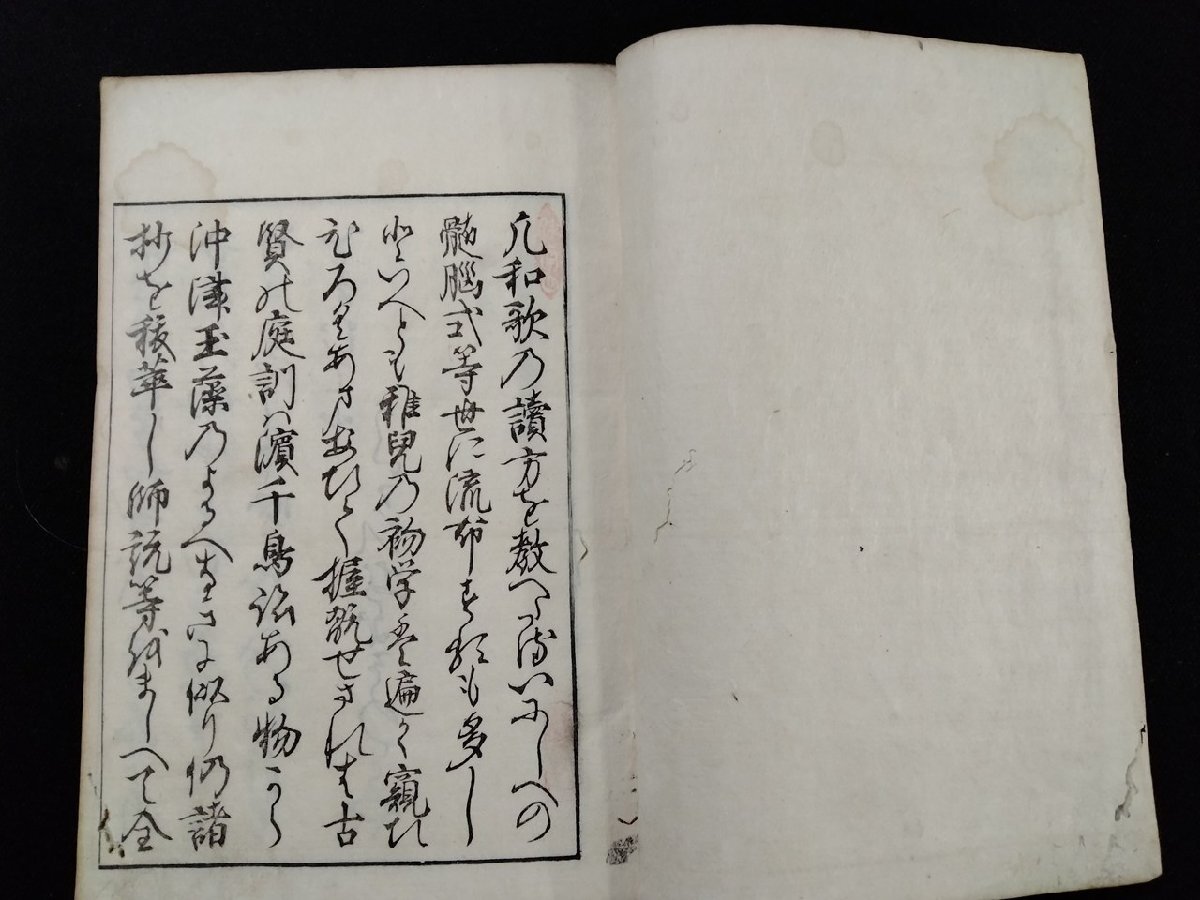 凡和歌乃讀方を教へたるいにしへの
髄脳式等世に流布する処も多し
といへとも稚児乃初学普遍く窺ひ
むろくあさあひて握翫せされは古
賢の庭訓は濱千鳥跡ある物から
沖津玉藻乃よるへなきに似り仍諸
抄を抜萃し師説等をましへて全